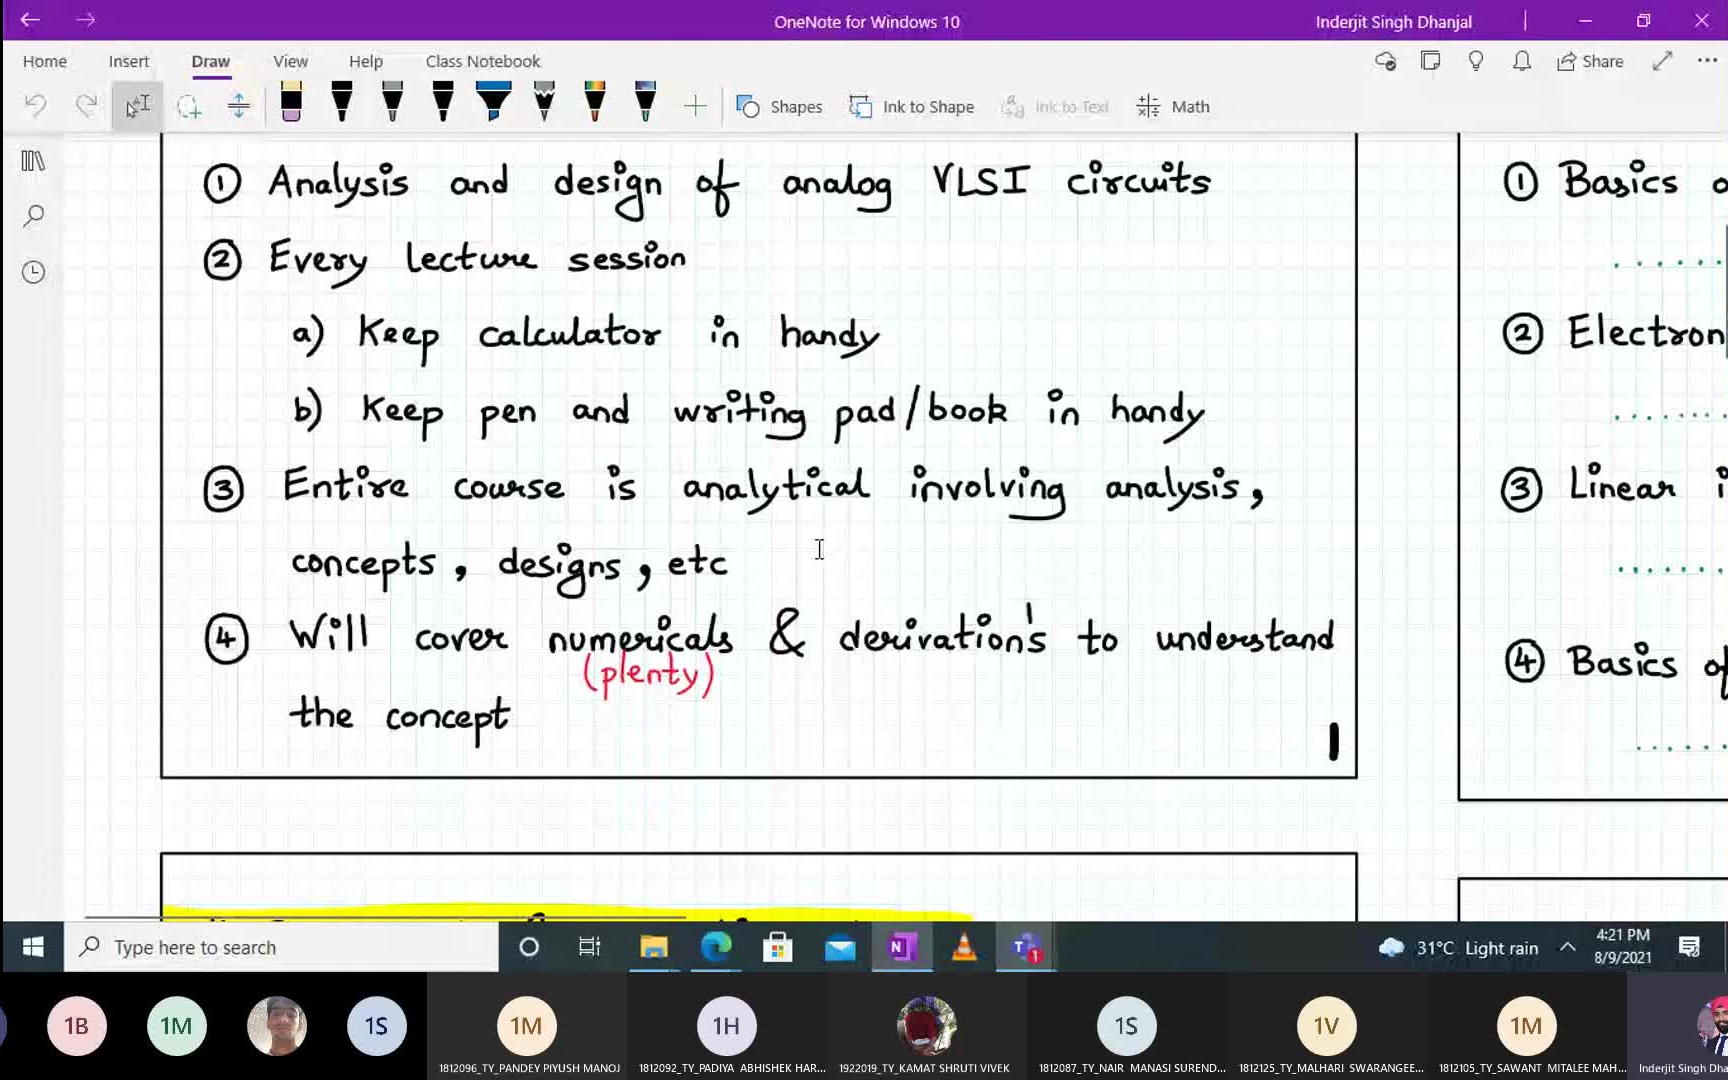 OneNote for Windows 10
Inderjit Singh Dhanjal
Home Insert Draw View Help Class Notebook
Share
Shapes Ink to Shape Ink to Text Math
1 Analysis and design of analog VLSI circuits
2 Every lecture session
a) Keep calculator in handy
b) Keep pen and writing pad/book in handy
3 Entire course is analytical involving analysis,
concepts, designs, etc
4 Will cover numericals & derivation's to understand
(plenty)
the concept
1
1 Basics o
2 Electron
3 Linear i
4 Basics of
Type here to search
31°C Light rain
4:21 PM
8/9/2021
1B 1M 1S 1M 1H 1S 1V 1M
1812096_TY_PANDEY PIYUSH MANOJ
1812092_TY_PADIYA ABHISHEK HAR...
1922019_TY_KAMAT SHRUTI VIVEK
1812087_TY_NAIR MANASI SUREND...
1812125_TY_MALHARI SWARANGEE...
1812105_TY_SAWANT MITALEE MAH...
Inderjit Singh Dha